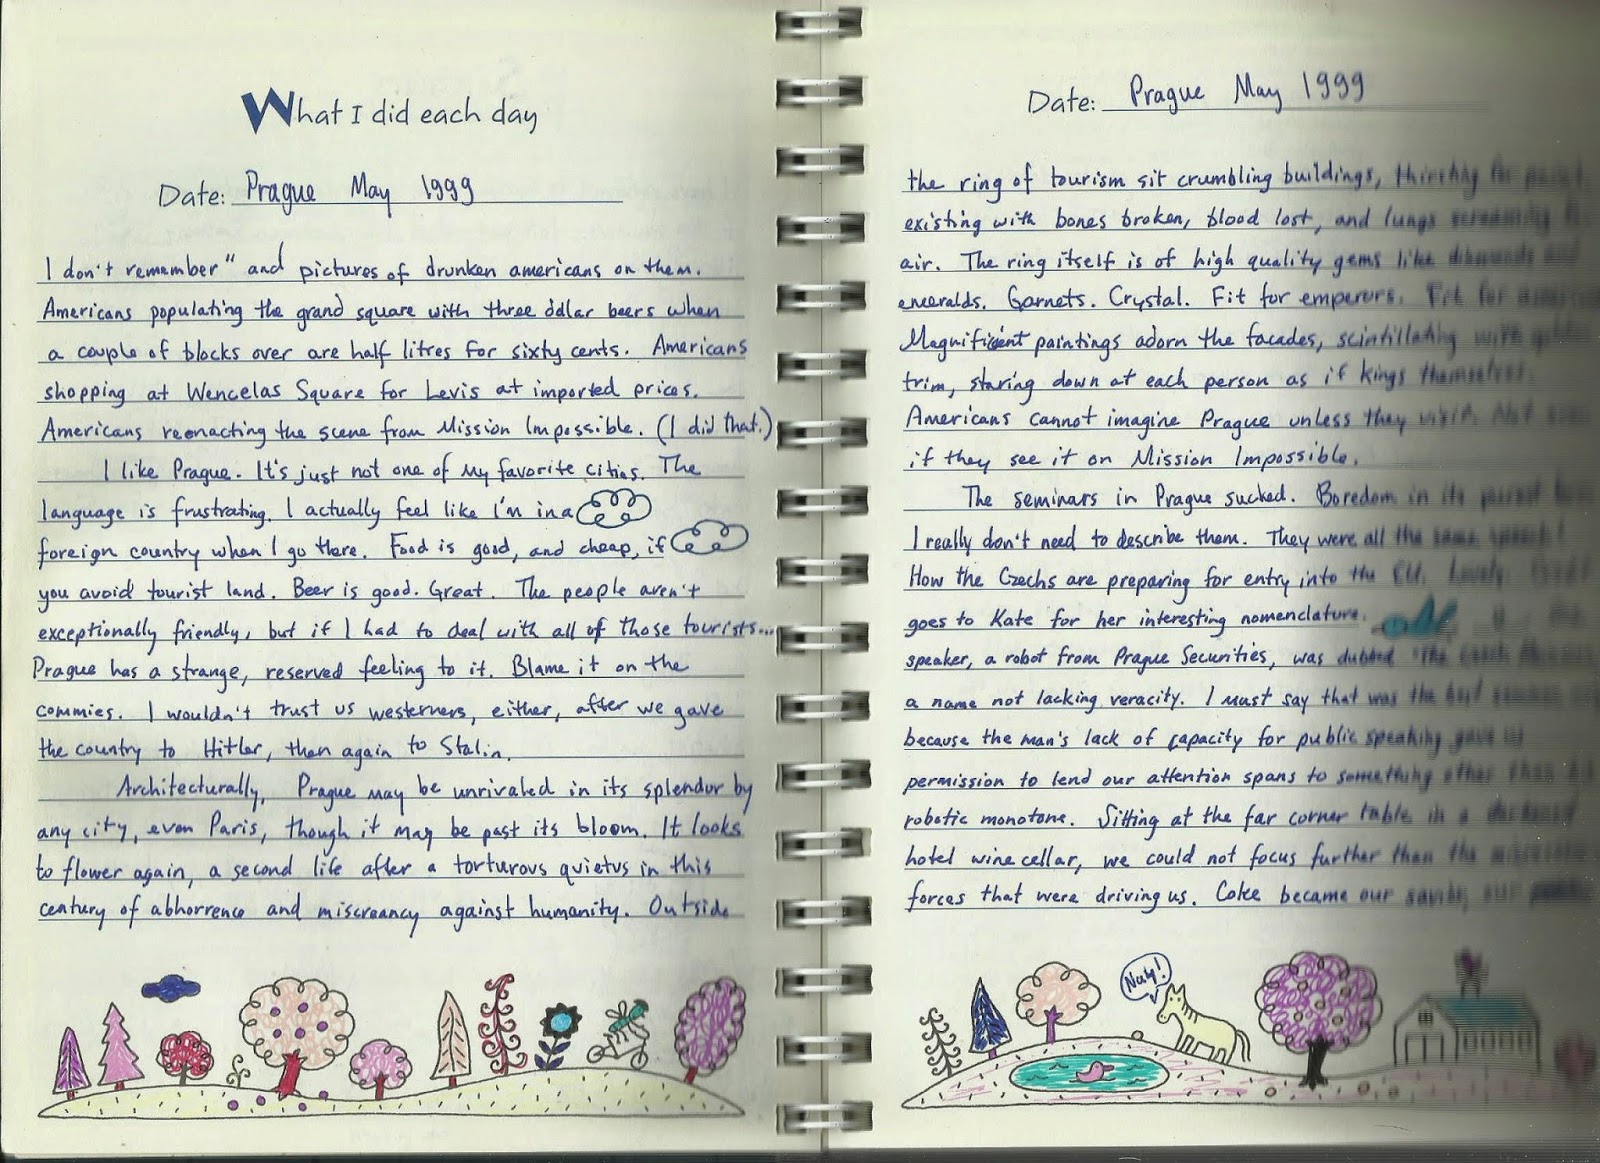 What I did each day
Date: Prague May 1999
I don't remember" and pictures of drunken americans on them.
Americans populating the grand square with three dollar beers when
a couple of blocks over are half litres for sixty cents. Americans
shopping at Wencelas Square for Levis at imported prices.
Americans reenacting the scene from Mission Impossible. (I did that.)
I like Prague. It's just not one of my favorite cities. The
language is frustrating. I actually feel like I'm in a
foreign country when I go there. Food is good, and cheap, if
you avoid tourist land. Beer is good. Great. The people aren't
exceptionally friendly, but if I had to deal with all of those tourists...
Prague has a strange, reserved feeling to it. Blame it on the
commies. I wouldn't trust us westerners, either, after we gave
the country to Hitler, then again to Stalin.
Architecturally, Prague may be unrivaled in its splendor by
any city, even Paris, though it may be past its bloom. It looks
to flower again, a second life after a torturous quietus in this
century of abhorrence and miscreancy against humanity. Outside
Date: Prague May 1999
the ring of tourism sit crumbling buildings, thirsting for
existing with bones broken, blood lost, and lungs screaming
air. The ring itself is of high quality gems like diamonds and
emeralds. Garnets. Crystal. Fit for emperors. Fit for
Magnificent paintings adorn the facades, scintillating with golden
trim, staring down at each person as if kings themselves.
Americans cannot imagine Prague unless they visit. Not even
if they see it on Mission Impossible.
The seminars in Prague sucked. Boredom in its purest
I really don't need to describe them. They were all the same speech!
How the Czechs are preparing for entry into the EU. Lovely.
goes to Kate for her interesting nomenclature.
speaker, a robot from Prague Securities, was dubbed "The Czech
a name not lacking veracity. I must say that was the best
because the man's lack of capacity for public speaking gave us
permission to lend our attention spans to something other than
robotic monotone. Sitting at the far corner table in a
hotel wine cellar, we could not focus further than the
forces that were driving us. Coke became our savior, our
Neigh!